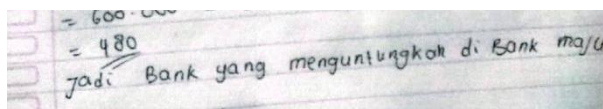 = 600.000
= 480
Jadi Bank yang menguntungkan di Bank maju